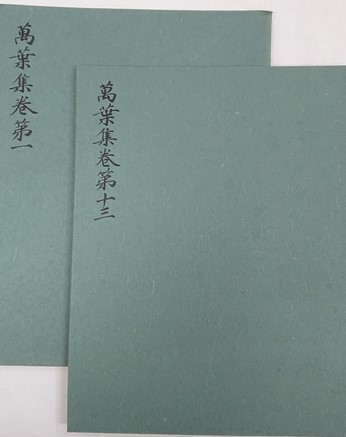 萬葉集巻第一
萬葉集巻第十三